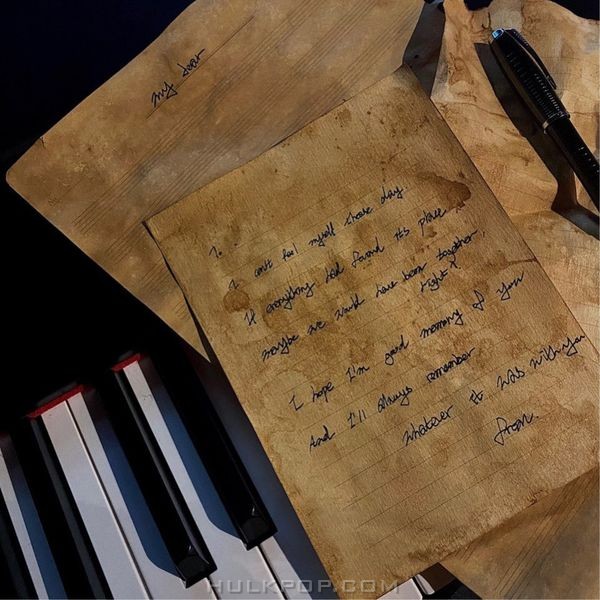 my dear
To.
I can't feel myself those day.
If everything had found its place
maybe we would have been together,
right?
I hope I'm good memory of you
And I'll always remember
Whatever it was with you
from.
HULKPOP.COM